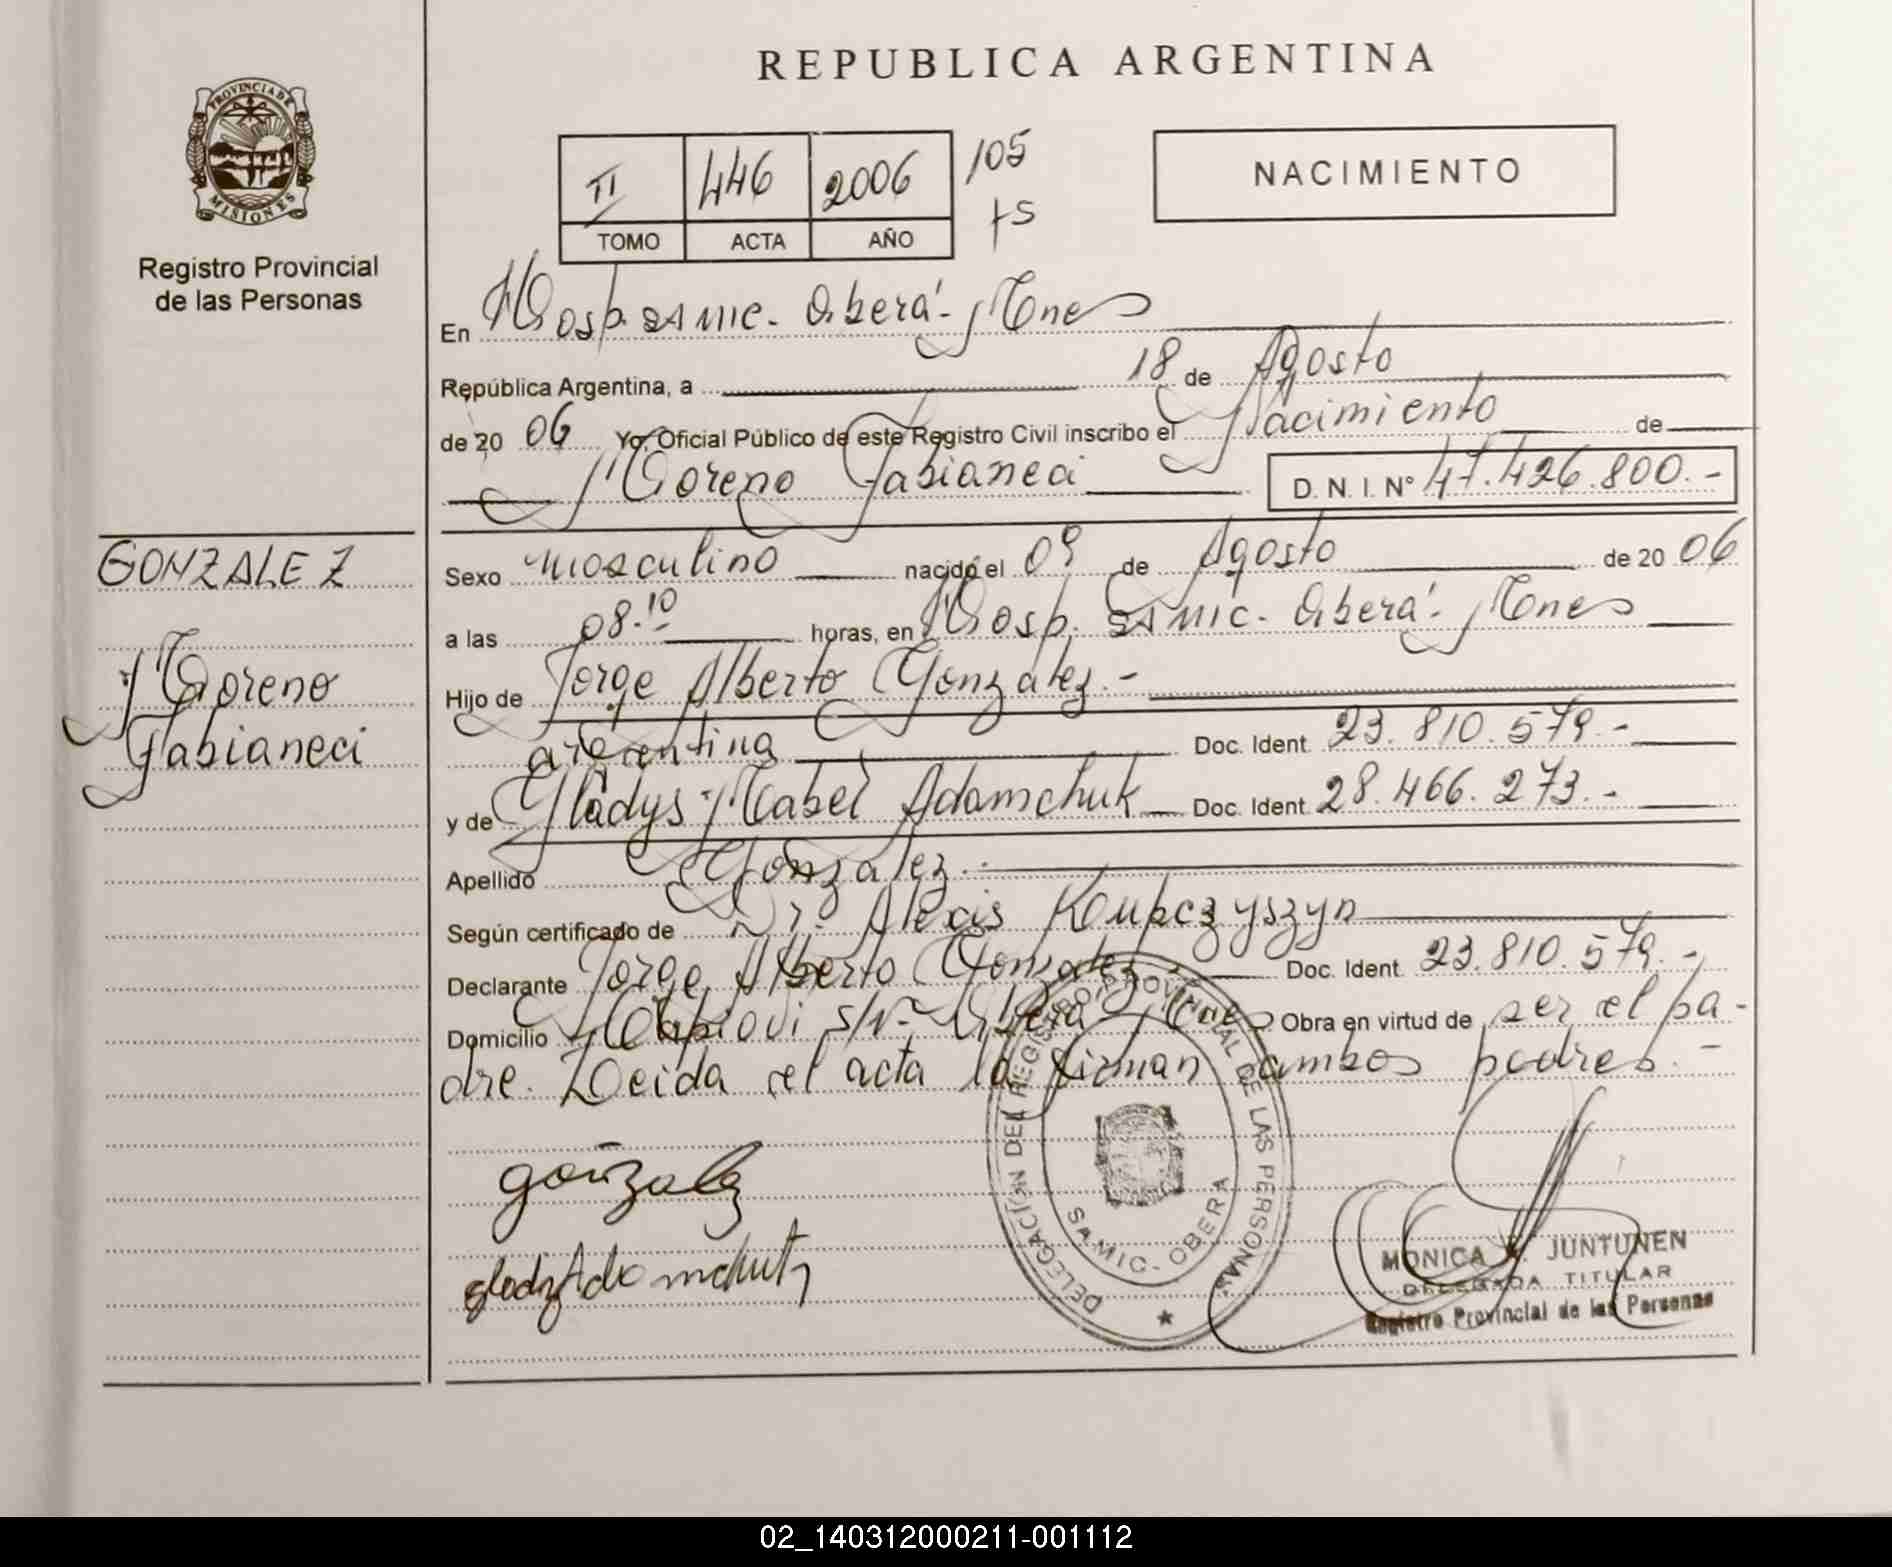 REPUBLICA ARGENTINA
PROVINCIA DE
MISIONES
Registro Provincial
de las Personas
II 446 2006 105
TOMO ACTA AÑO
NACIMIENTO
En Hosp. SAMIC. Oberá - Mnes
República Argentina, a 18 de Agosto
de 20 06 Yo, Oficial Público de este Registro Civil inscribo el Nacimiento de
Moreno Fabianeci D. N. I. Nº 47.426.800.-
GONZALEZ
Moreno
Fabianeci
Sexo masculino nacido el 09 de Agosto de 20 06
a las 08.10 horas, en Hosp. SAMIC. Oberá - Mnes
Hijo de Jorge Alberto Gonzalez.-
argentina Doc. Ident. 23.810.579.-
y de Gladys Mabel Adamchuk Doc. Ident. 28.466.273.-
Apellido Gonzalez.-
Según certificado de Dr. Alexis Kupczyszyn
Declarante Jorge Alberto Gonzalez.- Doc. Ident. 23.810.579.-
Domicilio s/nº Oberá Mnes Obra en virtud de ser el pa-
dre. Leida el acta la firman ambos padres.-
gonzalez
gladys Adamchuk
DELEGACIÓN DEL REGISTRO PROVINCIAL DE LAS PERSONAS
SAMIC - OBERA
MONICA JUNTUNEN
DELEGADA TITULAR
Registro Provincial de las Personas
02_140312000211-001112